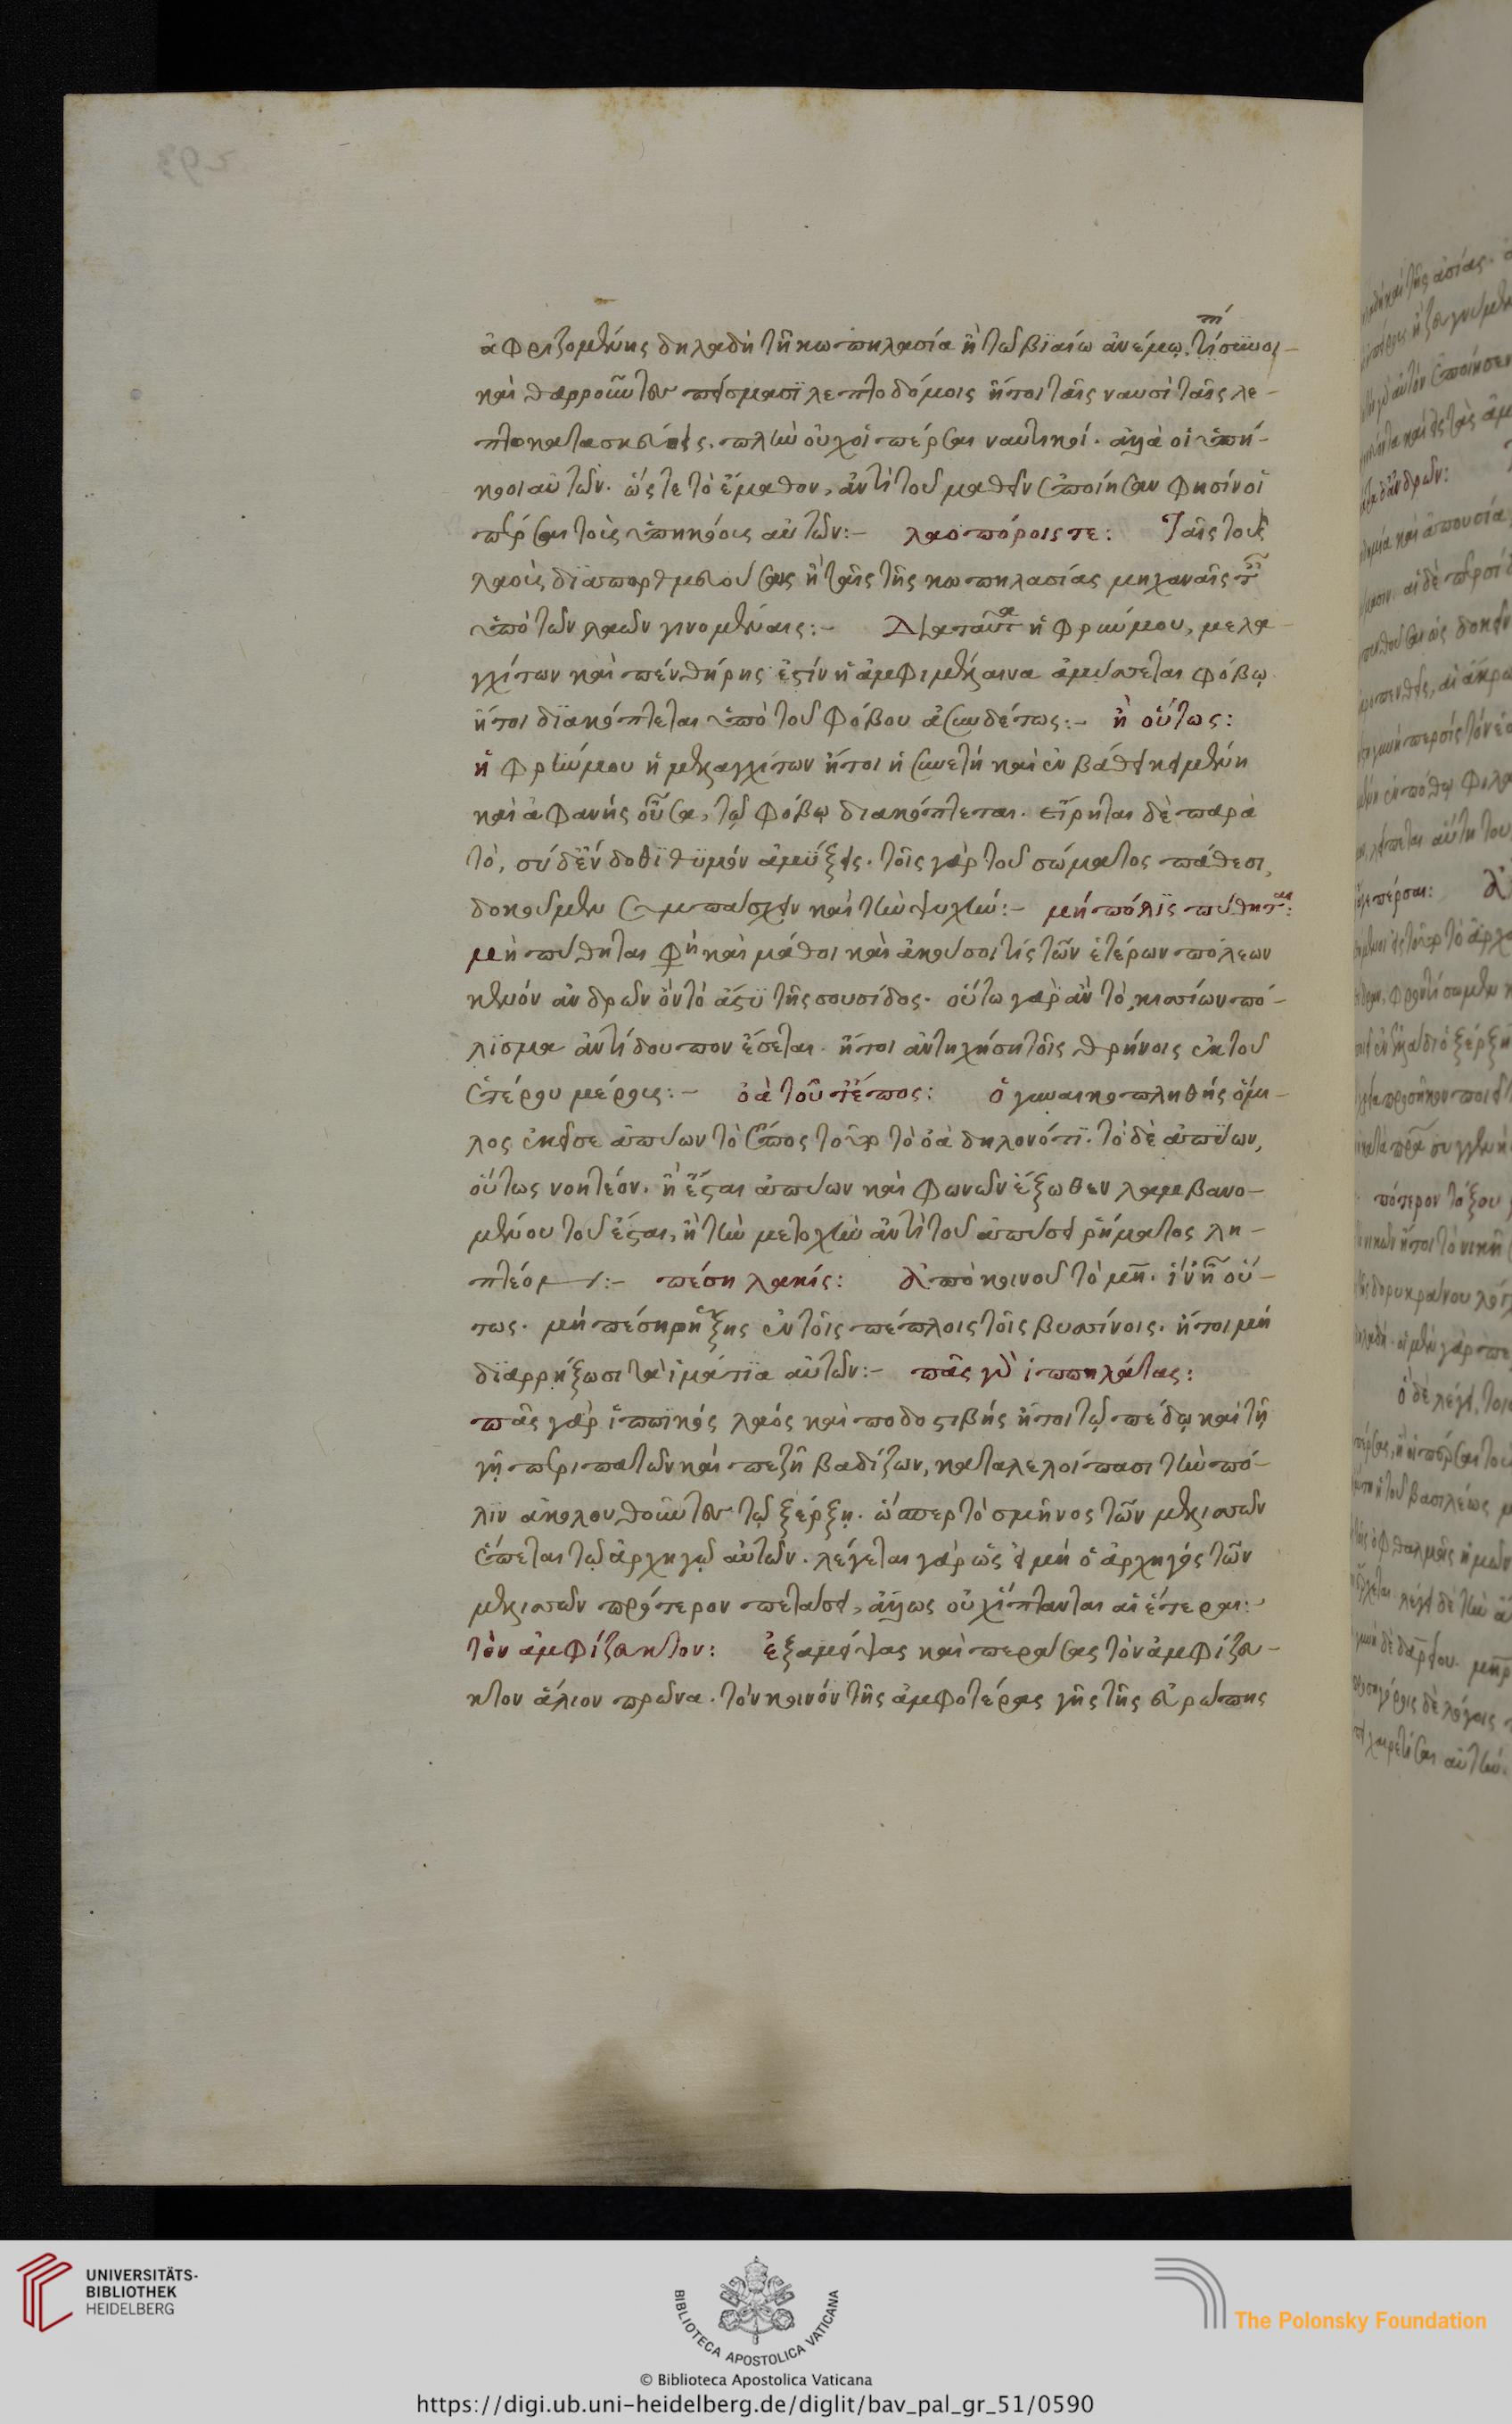 ἀφριζομένης δηλαδὴ τῆ κωπηλασία ἢ τῶ βϊαίω ἀνέμω. πίσυνοι
καὶ θαρροῦντες πείσμασϊ λεπτοδόμοις ἤτοι ταῖς ναυσὶ ταῖς λε-
πτοκατασκεύοις. πλὴν οὐχ οἱ πέρσαι ναυτικοί. ἀλλὰ οἱ ὑπή-
κοοι αὐτῶν. ὥςτε τὸ ἔμαθον, ἀντὶ τοῦ μαθεῖν ἐποίησαν φησίν οἱ
πέρσαι τοὺς ὑπηκόους αὐτῶν:- λαοπόροις τε: Ταῖς τοὺς
λαοὺς δϊαπορθμευούσαις ἢ ταῖς τῆς κωπηλασίας μηχαναῖς ταῖς
ὑπὸ τῶν λαῶν γινομέναις:- Διὰ ταῦτα ἡ φρήν μου, μελα-
γχίτων καὶ πένθήρης ἐστίν ἡ ἀμφιμέλαινα ἀμύσσεται φόβω
ἤτοι δϊακόπτεται ὑπὸ τοῦ φόβου ἀσυνδέτως:- ἢ οὕτως:
ἡ φρήν μου ἡ μελαγχίτων ἤτοι ἡ συνετή καὶ ἐν βάθει κειμένη
καὶ ἀφανής οὖσα, τῷ φόβῳ διακόπτεται. εἴρηται δὲ παρὰ
τὸ, σύ δ᾽ ἔνδοθϊ θϋμόν ἀμΰξεις. τοῖς γὰρ τοῦ σώματος πάθεσι,
δοκοῦμεν συμπάσχειν καὶ τὴν ψυχήν:- μή πόλϊς πύθηται:
μὴ πύθηται φη καὶ μάθοι καὶ ἀκούσοι τίς τῶν ἑτέρων πόλεων
κενόν ἀνδρῶν ὄν τὸ ἄστϋ τῆς σουσίδος. οὕτω γὰρ ἂν τὸ κισσίων πό-
λϊσμα ἀντίδουπον ἔσεται. ἤτοι ἀντηχήση τοῖς θρήνοις ἐκ τοῦ
ἑτέρου μέρους:- ὀὰ τοῦτ᾽ ἔπος: ὁ γυναικοπληθής ὅμι-
λος ἐκεῖσε ἀπύων τὸ ἔπος τοῦτο τὸ ὀὰ δηλονότϊ. τὸ δὲ ἀπΰων,
οὕτως νοητέον. ἢ ἔσται ἀπύων καὶ φωνῶν ἔξωθεν λαμβανο-
μένου τοῦ ἔσται, ἢ τὴν μετοχὴν ἀντὶ τοῦ ἀπύσει ῥήματος λη-
πτέον:- πέση λακίς: Ἀπὸ κοινοῦ τὸ μη. ἵν᾽ ῆ οὕ-
τως. μή πέση ρῆξης ἐν τοῖς πέπλοις τοῖς βυσσίνοις. ἤτοι μή
δϊαρρήξωσι τὰ ἱμάτϊα αὐτῶν:- πᾶς γὰρ ἱππηλάτας:
πᾶς γὰρ ἱππϊκός λαός καὶ ποδοστιβής ἤτοι τῷ πέδῳ καὶ τῆ
γῇ περιπατῶν καὶ πεζῆ βαδίζων, καταλελοίπασι τὴν πό-
λϊν ἀκολουθοῦντες τῷ ξέρξῃ. ὥσπερ τὸ σμῆνος τῶν μελισσῶν
ἕπεται τῷ ἀρχηγῷ αὐτῶν. λέγεται γάρ ὡς εἰ μή ὁ ἀρχηγός τῶν
μελισσῶν πρότερον πετάσει, ἄλλως οὐχ ἵπτανται αἱ ἕτεραι:-
τὸν ἀμφίζευκτον: ἐξαμείψας καὶ περάσας τὸν ἀμφίζευ-
κτον ἅλιον πρῶνα. τόν κοινόν τῆς ἀμφοτέρας γῆς τῆς εὐρώπης
UNIVERSITÄTS-
BIBLIOTHEK
HEIDELBERG
BIBLIOTECA APOSTOLICA VATICANA
The Polonsky Foundation
© Biblioteca Apostolica Vaticana
https://digi.ub.uni-heidelberg.de/diglit/bav_pal_gr_51/0590